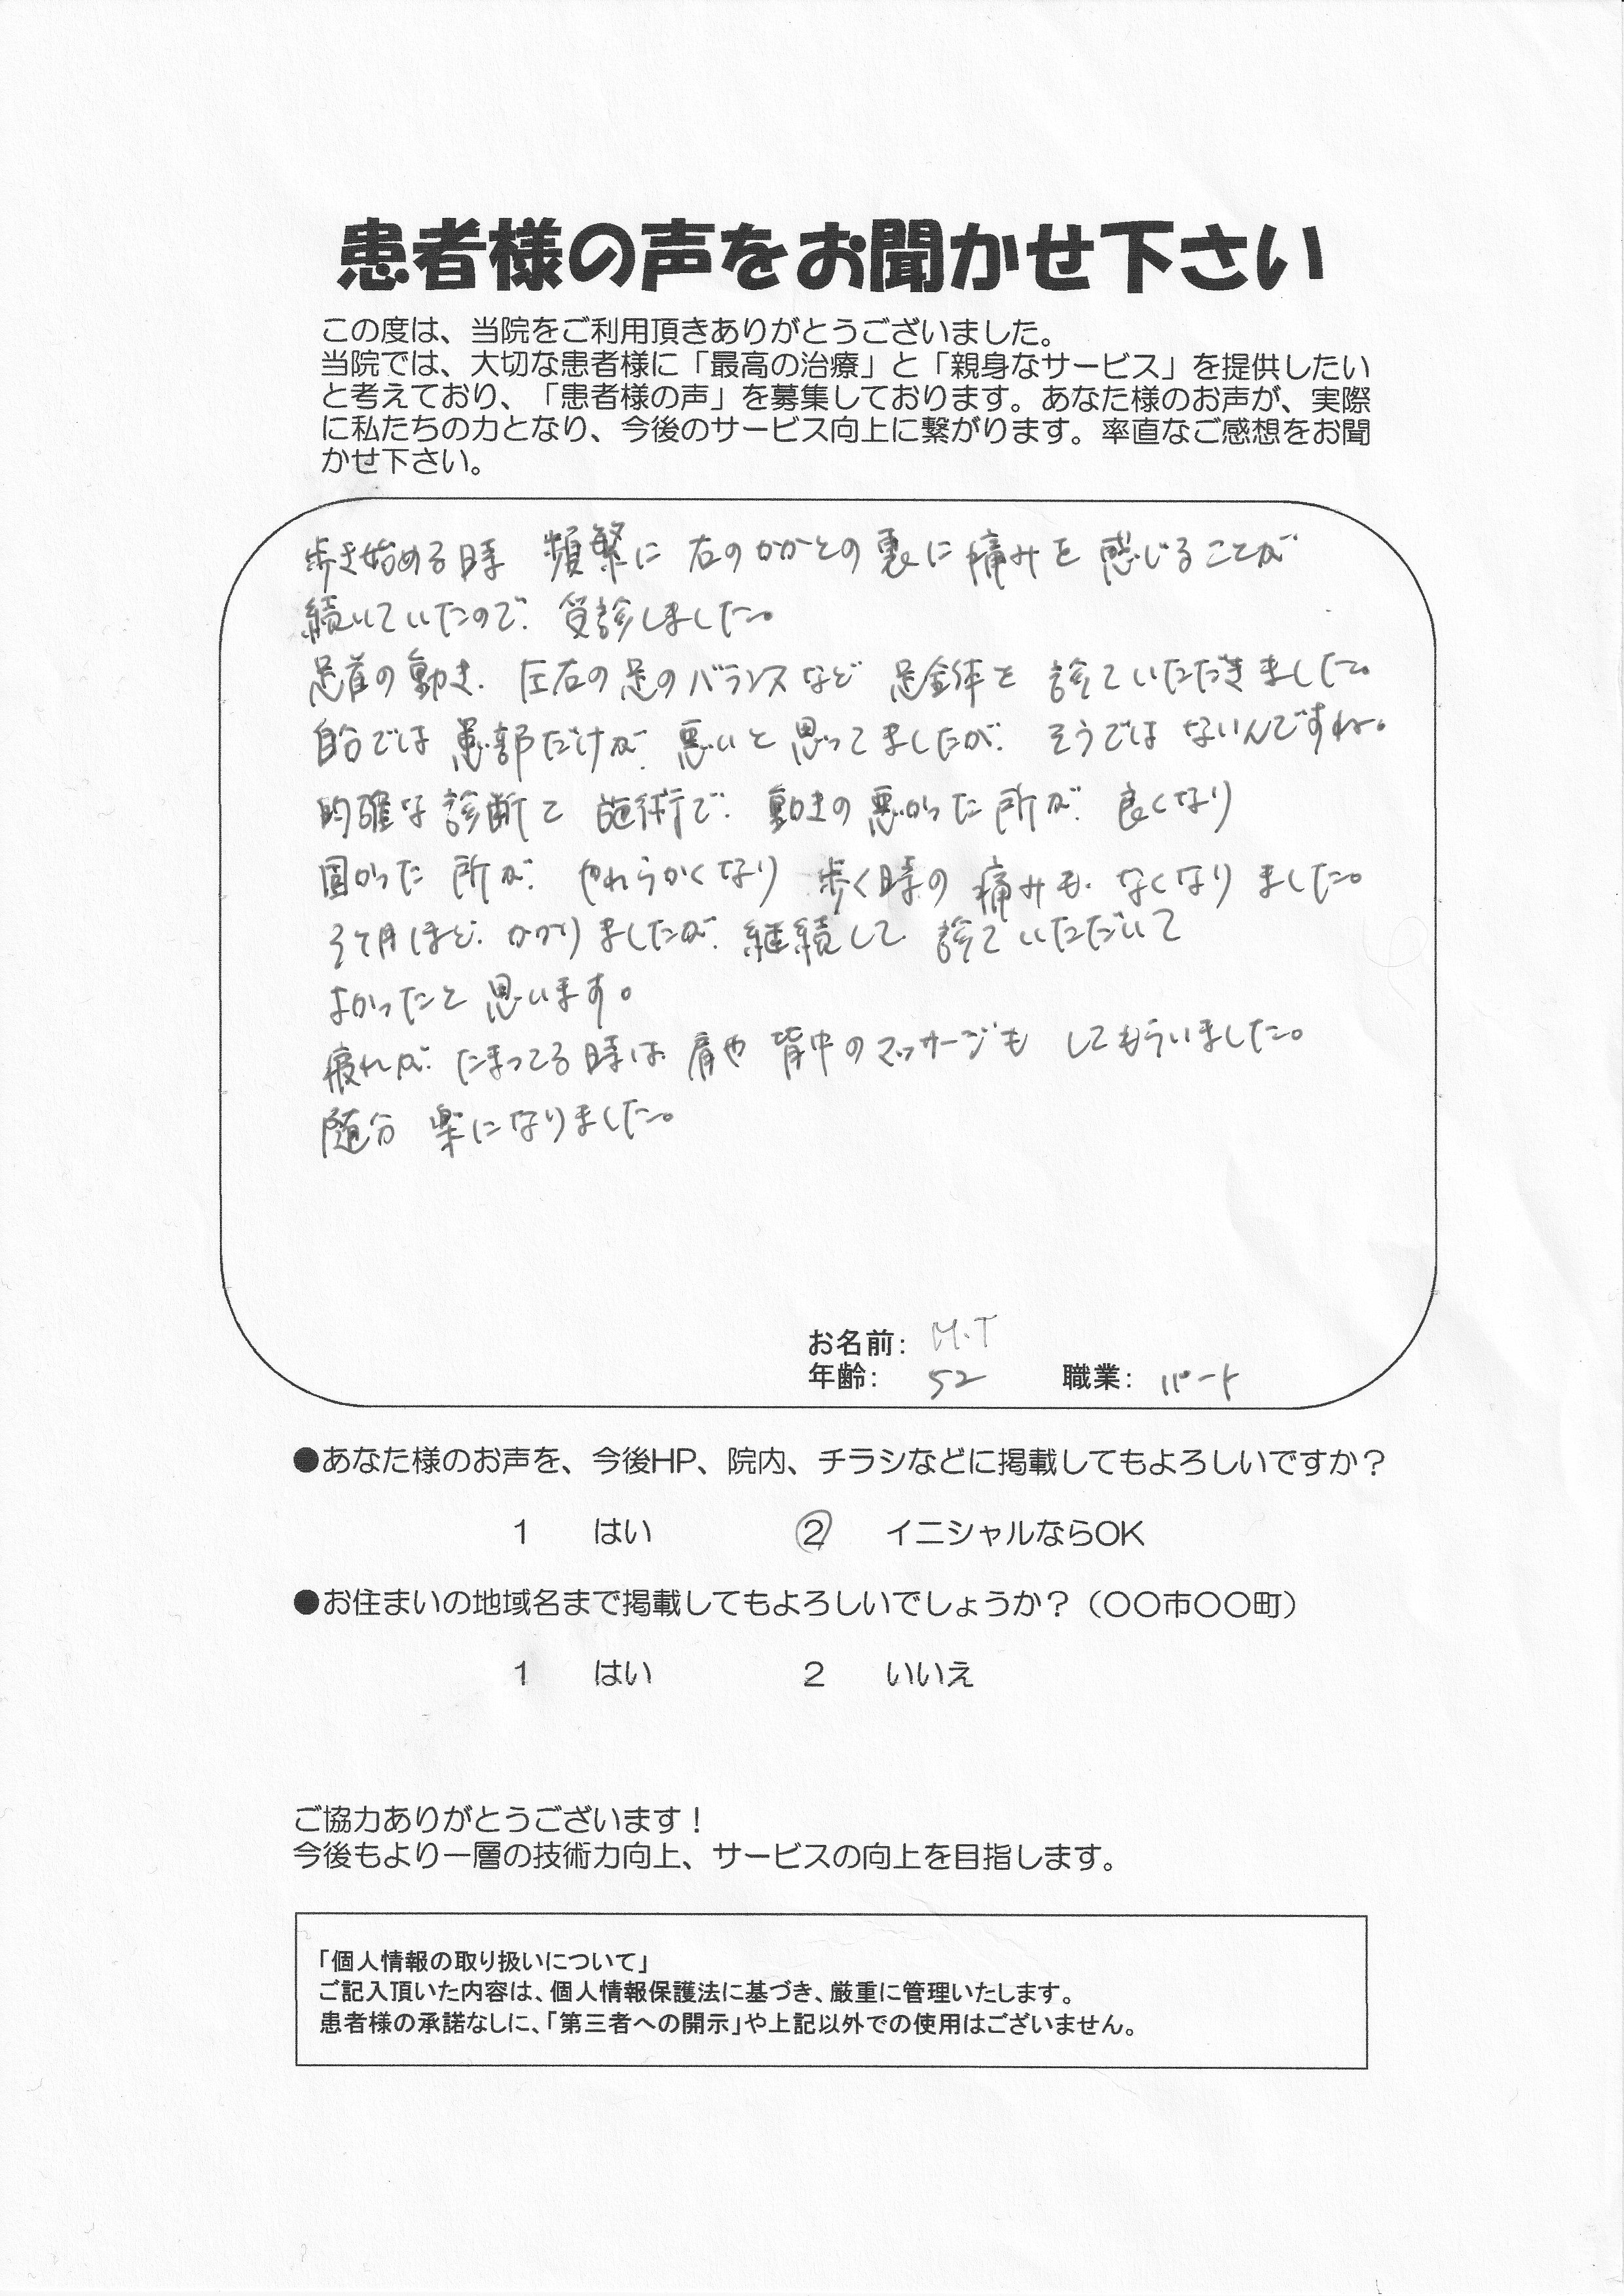 患者様の声をお聞かせ下さい
この度は、当院をご利用頂きありがとうございました。
当院では、大切な患者様に「最高の治療」と「親身なサービス」を提供したい
と考えており、「患者様の声」を募集しております。あなた様のお声が、実際
に私たちの力となり、今後のサービス向上に繋がります。率直なご感想をお聞
かせ下さい。
歩き始める時 頻繁に 右のかかとの裏に痛みを感じることが
続いていたので、受診しました。
足首の動き、左右の足のバランスなど 足全体を 診ていただきました。
自分では患部だけが、悪いと思ってましたが、そうではないんですね。
的確な診断と施術で、動きの悪かった所が、良くなり
固かった所が、やわらかくなり 歩く時の痛みも、なくなりました。
3ヶ月ほど、かかりましたが、継続して、診ていただいて
よかったと思います。
疲れが、たまってる時は、肩や背中のマッサージも してもらいました。
随分 楽になりました。
お名前: M.T
年齢: 52 職業: パート
●あなた様のお声を、今後HP、院内、チラシなどに掲載してもよろしいですか?
1 はい 2 イニシャルならOK
●お住まいの地域名まで掲載してもよろしいでしょうか?(〇〇市〇〇町)
1 はい 2 いいえ
ご協力ありがとうございます!
今後もより一層の技術力向上、サービスの向上を目指します。
「個人情報の取り扱いについて」
ご記入頂いた内容は、個人情報保護法に基づき、厳重に管理いたします。
患者様の承諾なしに、「第三者への開示」や上記以外での使用はございません。